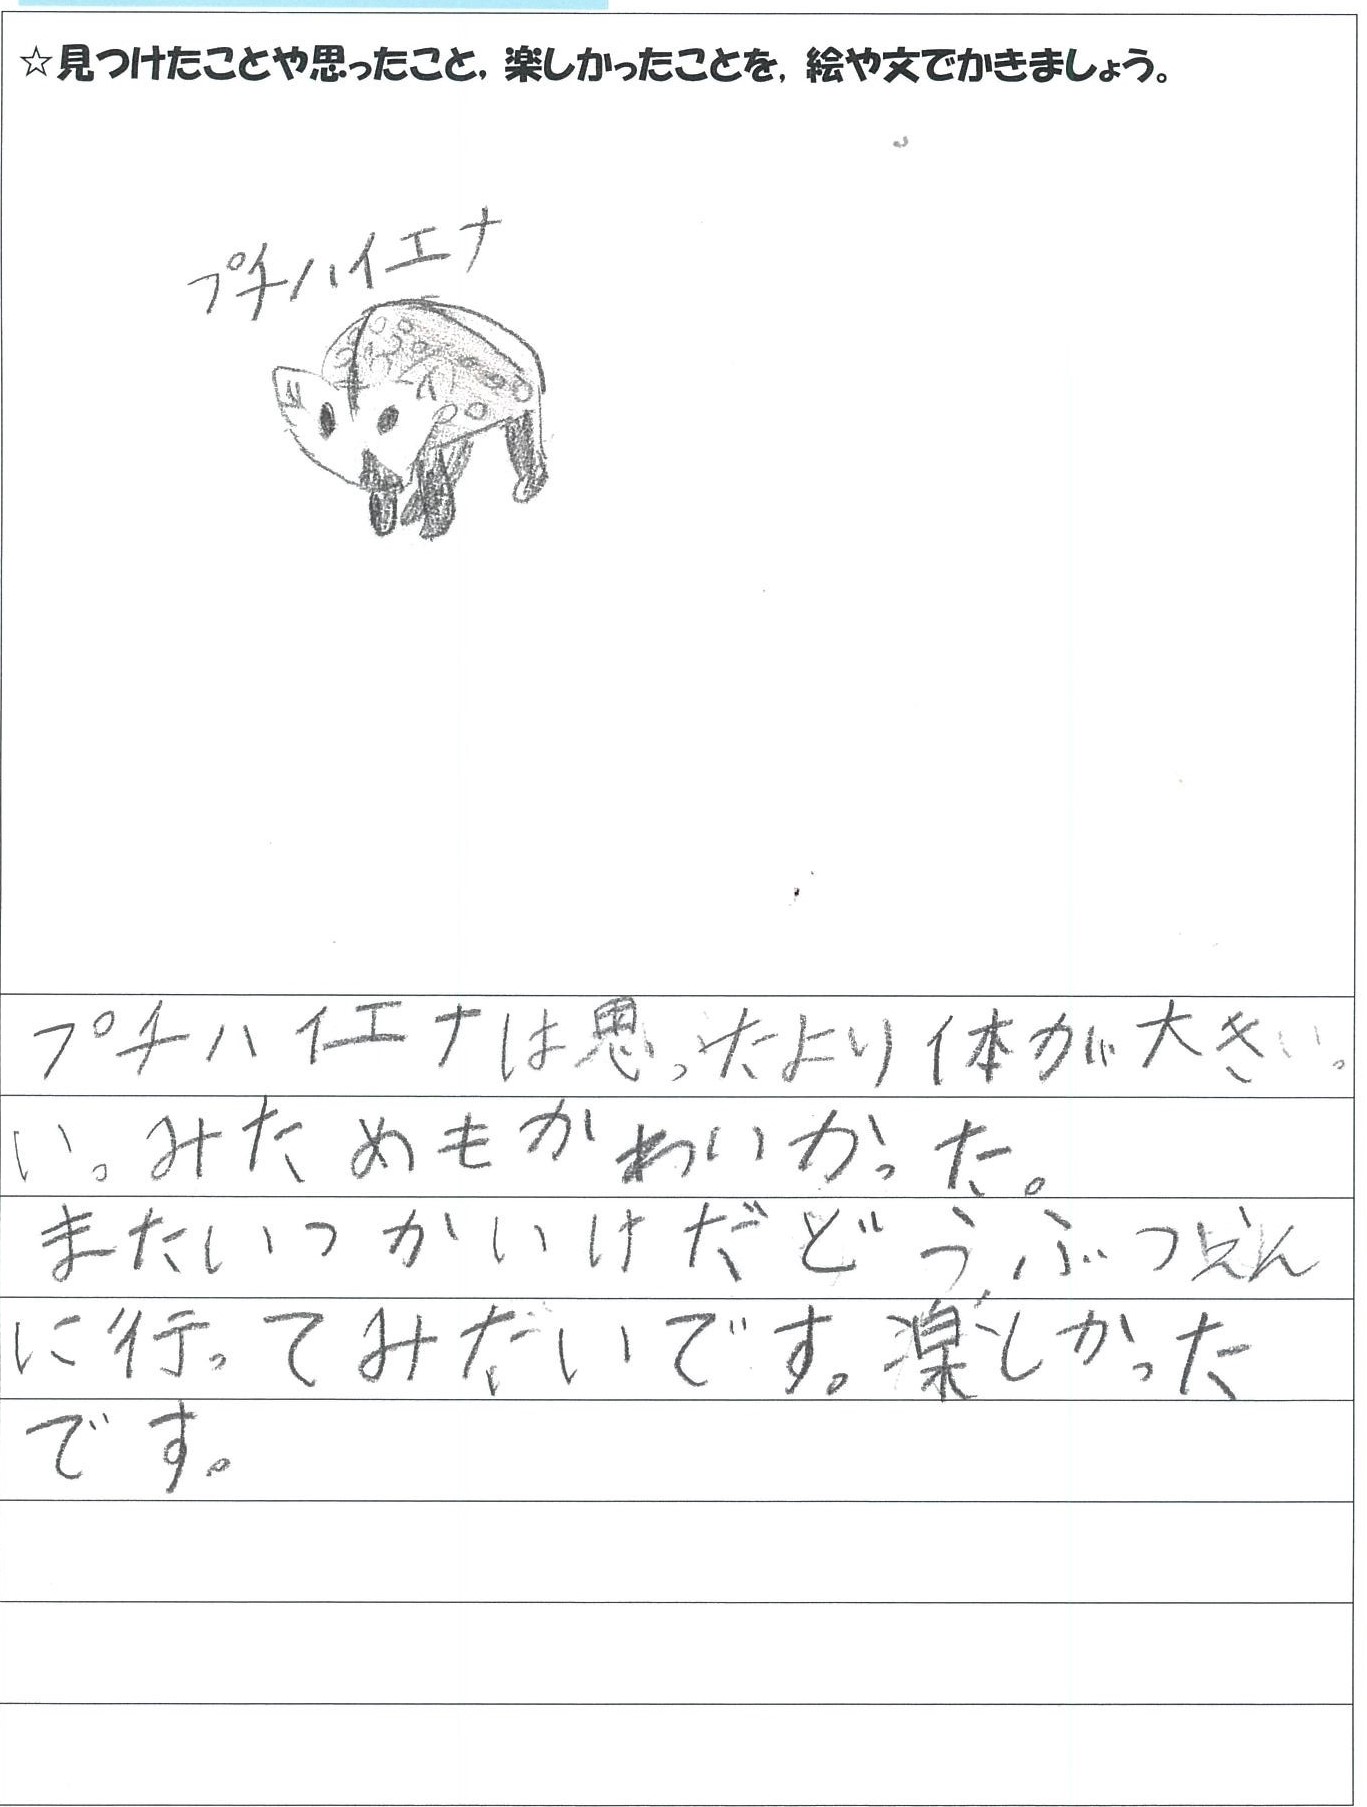 ☆見つけたことや思ったこと，楽しかったことを，絵や文でかきましょう。
プチハイエナ
プチハイエナは思ったより体が大き
い。みためもかわいかった。
またいつかいけだどうぶつえん
に行ってみたいです。楽しかった
です。